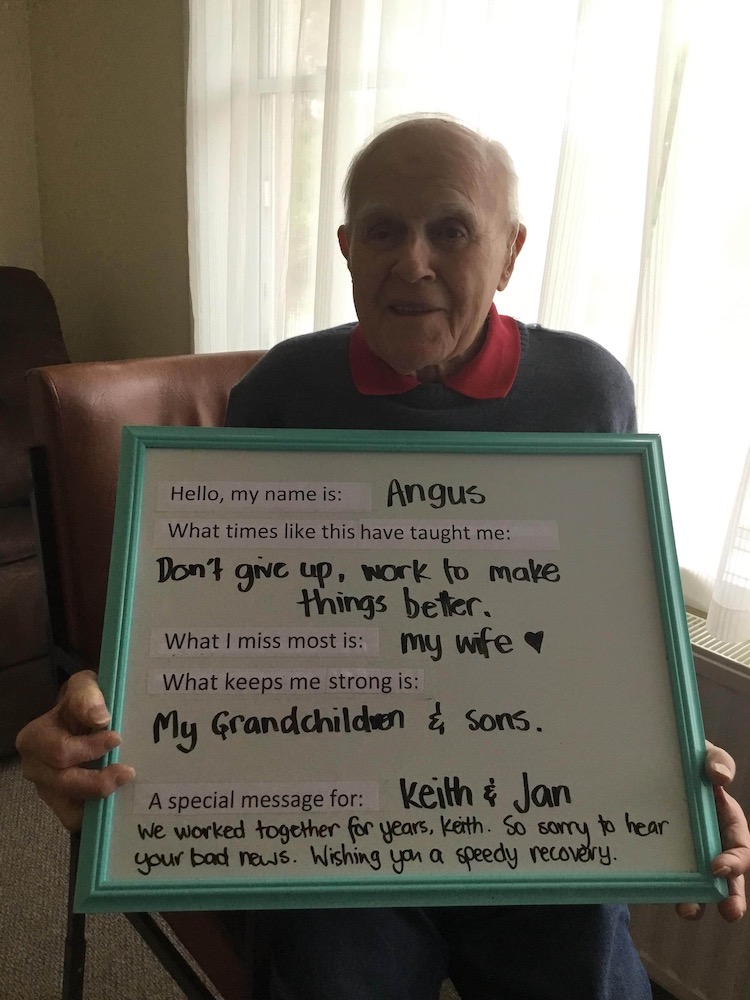 Hello, my name is: Angus
What times like this have taught me:
Don't give up, work to make
things better.
What I miss most is: my wife ♥
What keeps me strong is:
My Grandchildren & sons.
A special message for: Keith & Jan
We worked together for years, Keith. So sorry to hear
your bad news. Wishing you a speedy recovery.